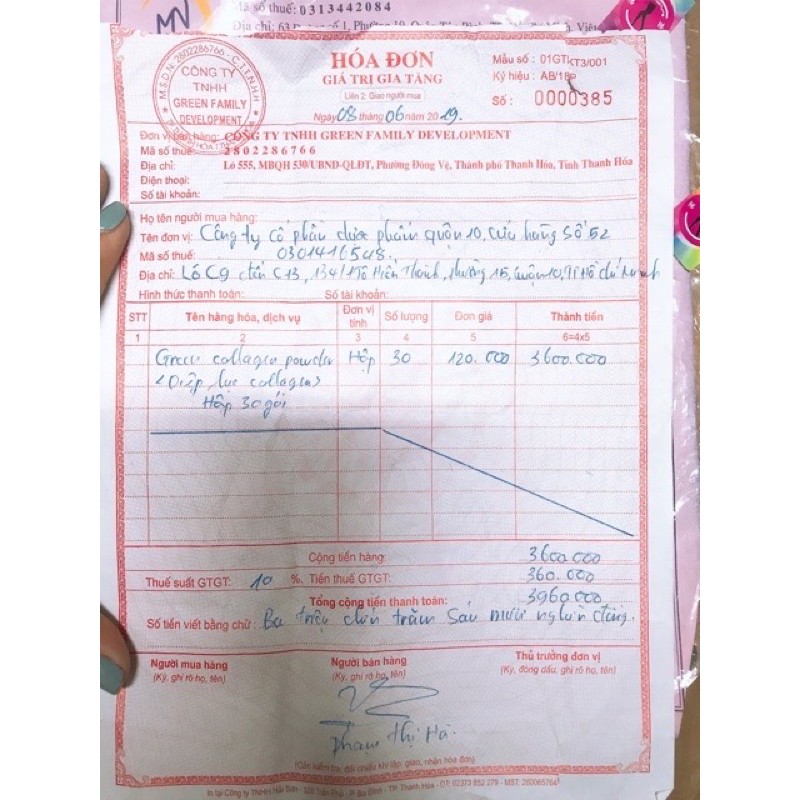 MN
Mã số thuế: 0313442084
HÓA ĐƠN
GIÁ TRỊ GIA TĂNG
Liên 2: Giao người mua
Ngày 08 tháng 06 năm 2019.
Mẫu số: 01GTKT3/001
Ký hiệu: AB/18P
Số: 0000385
M.S.D.N: 2802286766 - C.T.T.N.H.H
CÔNG TY
TNHH
GREEN FAMILY
DEVELOPMENT
Đơn vị bán hàng: CÔNG TY TNHH GREEN FAMILY DEVELOPMENT
Mã số thuế: 2802286766
Địa chỉ: Lô 555, MBQH 530/UBND-QLĐT, Phường Đông Vệ, Thành phố Thanh Hóa, Tỉnh Thanh Hóa
Điện thoại:
Số tài khoản:
Họ tên người mua hàng:
Tên đơn vị: Công ty cổ phần dược phẩm quận 10, cửa hàng số 52
Mã số thuế: 0301416548
Địa chỉ: Lô C9 đến C13, 134/1 Tô Hiến Thành, phường 15, quận 10, TP Hồ Chí Minh
Hình thức thanh toán: Số tài khoản:
STT Tên hàng hóa, dịch vụ Đơn vị tính Số lượng Đơn giá Thành tiền
1 2 3 4 5 6=4x5
Green collagen powder Hộp 30 120.000 3600.000
<Diệp lục collagen>
Hộp 30 gói
Cộng tiền hàng: 3600.000
Thuế suất GTGT: 10 %. Tiền thuế GTGT: 360.000
Tổng cộng tiền thanh toán: 3960.000
Số tiền viết bằng chữ: Ba triệu chín trăm sáu mươi nghìn đồng.
Người mua hàng Người bán hàng Thủ trưởng đơn vị
(Ký, ghi rõ họ, tên) (Ký, ghi rõ họ, tên) (Ký, đóng dấu, ghi rõ họ, tên)
Phạm Thị Hà
(Cần kiểm tra, đối chiếu khi lập, giao, nhận hóa đơn)